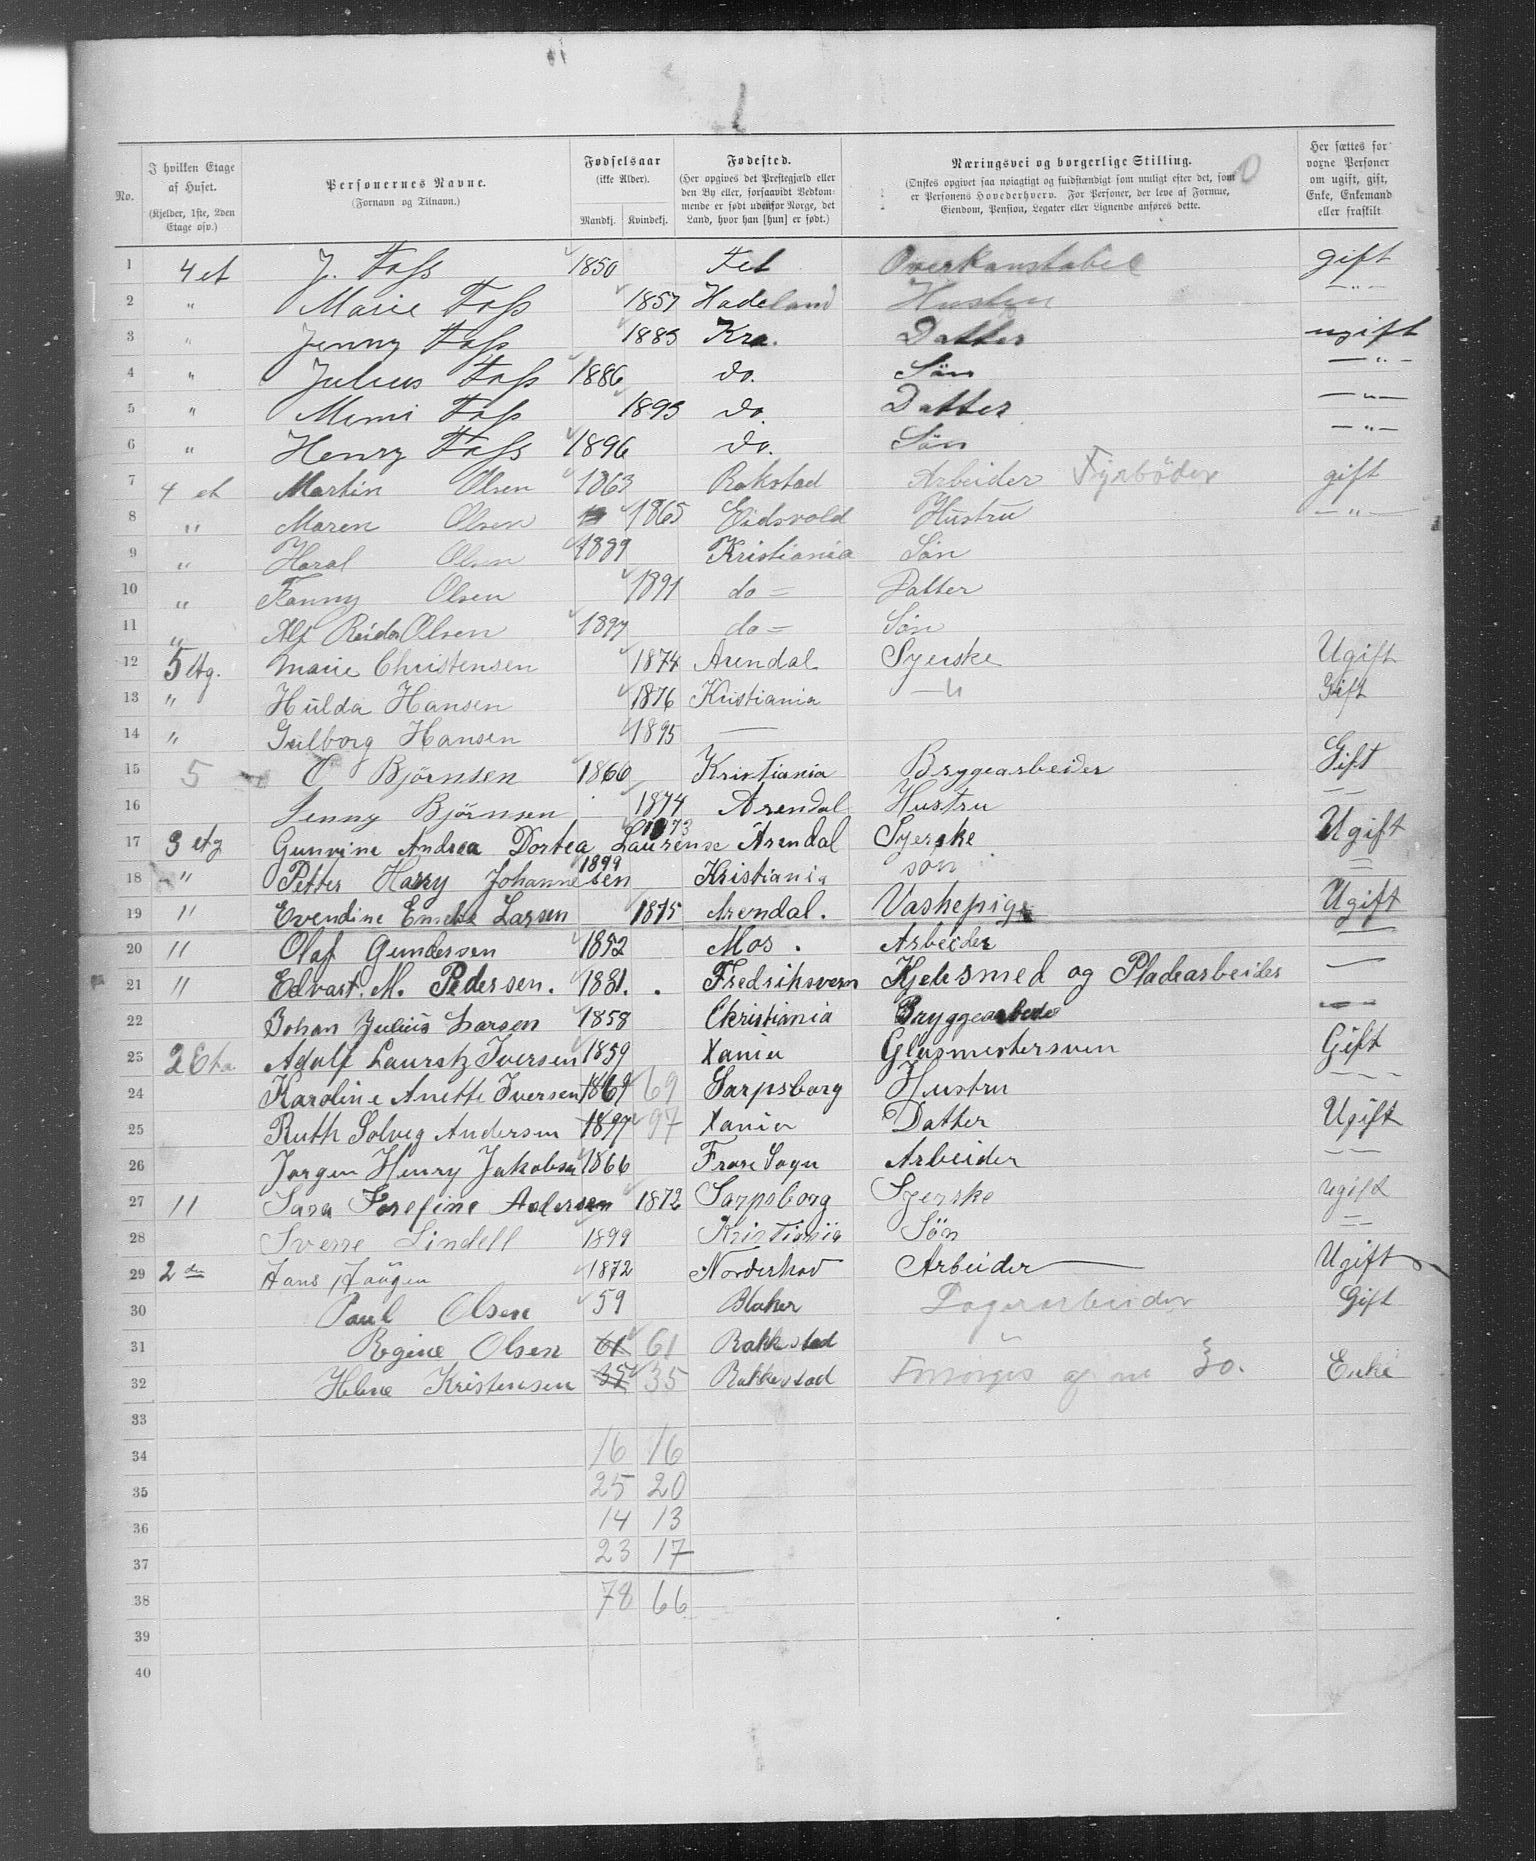 No.
I hvilken Etage af Huset. (Kjelder, 1ste, 2den Etage osv.)
Personernes Navne. (Fornavn og Tilnavn.)
Fødselsaar (ikke Alder). Mandkj. Kvindekj.
Fødested. (Her opgives det Prestegjæld eller den By eller, forsaavidt Vedkommende er født udenfor Norge, det Land, hvor han [hun] er født.)
Næringsvei og borgerlige Stilling. (Ønskes opgivet saa nøiagtigt og fuldstændigt som muligt efter det, som er Personens Hovederhverv. For Personer, der leve af Formue, Eiendom, Pension, Legater eller Lignende anføres dette.
Her sættes for voxne Personer om ugift, gift, Enke, Enkemand eller fraskilt
1 4 et J. Foss 1850 Fet Overkonstabel gift
2 " Marie Foss 1857 Hadeland Hustru — " —
3 " Jenny Foss 1883 Kra. Datter ugift
4 " Julius Foss 1886 do. Søn — " —
5 " Mimi Foss 1893 do. Datter — " —
6 " Henry Foss 1896 do. Søn — " —
7 4 et Martin Olsen 1863 Rakstad Arbeider Fyrbøder gift
8 " Maren Olsen 1865 Eidsvold Hustru — " —
9 " Haral Olsen 1889 Kristiania Søn
10 " Fanny Olsen 1891 do = Datter
11 " Alf Reidar Olsen 1897 do = Søn
12 5 etg. Marie Christensen 1874 Arendal Syerske Ugift
13 " Hulda Hansen 1876 Kristiania — " Gift
14 " Gulborg Hansen 1895 —
15 5 C Bjørnsen 1860 Kristiania Bryggearbeider Gift
16 Jenny Bjørnsen 1874 Arendal Hustru =
17 3 etg Gunvine Andrea Dortea Laurense 1873 Arendal Syerske Ugift
18 " Petter Harry Johannesen 1899 Kristiania søn =
19 " Evendine Emelie Larsen 1875 Arendal. Vaskepige Ugift
20 " Olaf Gundersen 1852 Mos. Arbeider —
21 " Edvart. M. Pedersen. 1881. Fredriksvern Kjelesmed og Pladearbeider —
22 Johan Julius Larsen 1858 Christiania Bryggearbeider —
23 2 Eta Adolf Lauratz Iversen 1859 Xania Glasmestersven Gift
24 Karoline Anette Iversen 1869 69 Sarpsborg Hustru — —
25 Ruth Solveg Andersen 1897 97 Xania Datter Ugift
26 Jørgen Henry Jakobsen 1866 Arbeider — —
27 " Sara Josefine Andersen 1872 Sarpsborg Syerske ugift
28 Sverre Lindell 1899 Kristiania Søn =
29 2den Hans Haugen 1872 Norderhov Arbeider — Ugift
30 Paul Olsen 59 Blaker Lagerarbeider Gift
31 Regine Olsen 61 61 Rakkestad
32 Helene Kristensen 35 35 Rakkestad Forsørges af no 30. Enke
33
34 16 16
35 25 20
36 14 13
37 23 17
38 78 66
39
40